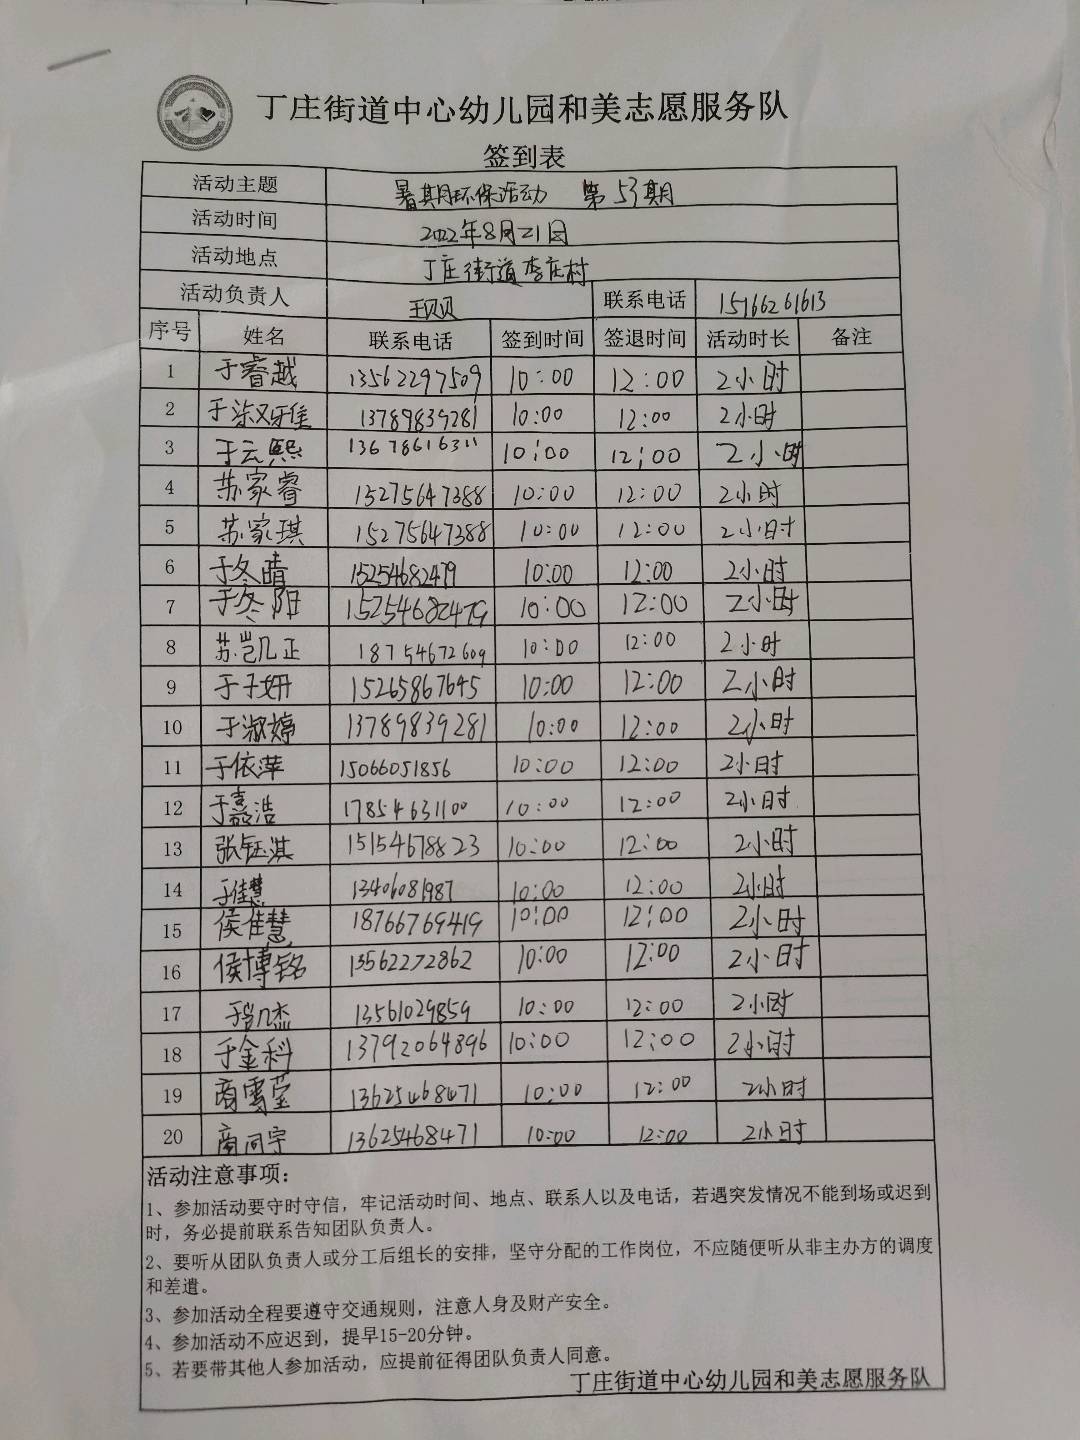 丁庄街道中心幼儿园和美志愿服务队
签到表
活动主题 暑期环保活动 第53期
活动时间 2022年8月21日
活动地点 丁庄街道李庄村
活动负责人 王贝贝 联系电话 15166261613
序号 姓名 联系电话 签到时间 签退时间 活动时长 备注
1 于睿越 13562297509 10:00 12:00 2小时
2 于 13789839281 10:00 12:00 2小时
3 于云熙 13678616311 10:00 12:00 2小时
4 苏家睿 15275647388 10:00 12:00 2小时
5 苏家琪 15275647388 10:00 12:00 2小时
6 于冬晴 15254682479 10:00 12:00 2小时
7 于冬阳 15254682479 10:00 12:00 2小时
8 苏凯正 18754672609 10:00 12:00 2小时
9 于子妍 15265867645 10:00 12:00 2小时
10 于淑婷 13789839281 10:00 12:00 2小时
11 于依萍 15066051856 10:00 12:00 2小时
12 于嘉浩 17854631100 10:00 12:00 2小时
13 张钰淇 15154678823 10:00 12:00 2小时
14 于佳慧 13406081987 10:00 12:00 2小时
15 侯佳慧 18766769419 10:00 12:00 2小时
16 侯博铭 13562272862 10:00 12:00 2小时
17 于凯杰 13561029859 10:00 12:00 2小时
18 于金科 13792064896 10:00 12:00 2小时
19 商雪莹 13625468471 10:00 12:00 2小时
20 商同宇 13625468471 10:00 12:00 2小时
活动注意事项：
1、参加活动要守时守信，牢记活动时间、地点、联系人以及电话，若遇突发情况不能到场或迟到
时，务必提前联系告知团队负责人。
2、要听从团队负责人或分工后组长的安排，坚守分配的工作岗位，不应随便听从非主办方的调度
和差遣。
3、参加活动全程要遵守交通规则，注意人身及财产安全。
4、参加活动不应迟到，提早15-20分钟。
5、若要带其他人参加活动，应提前征得团队负责人同意。
丁庄街道中心幼儿园和美志愿服务队